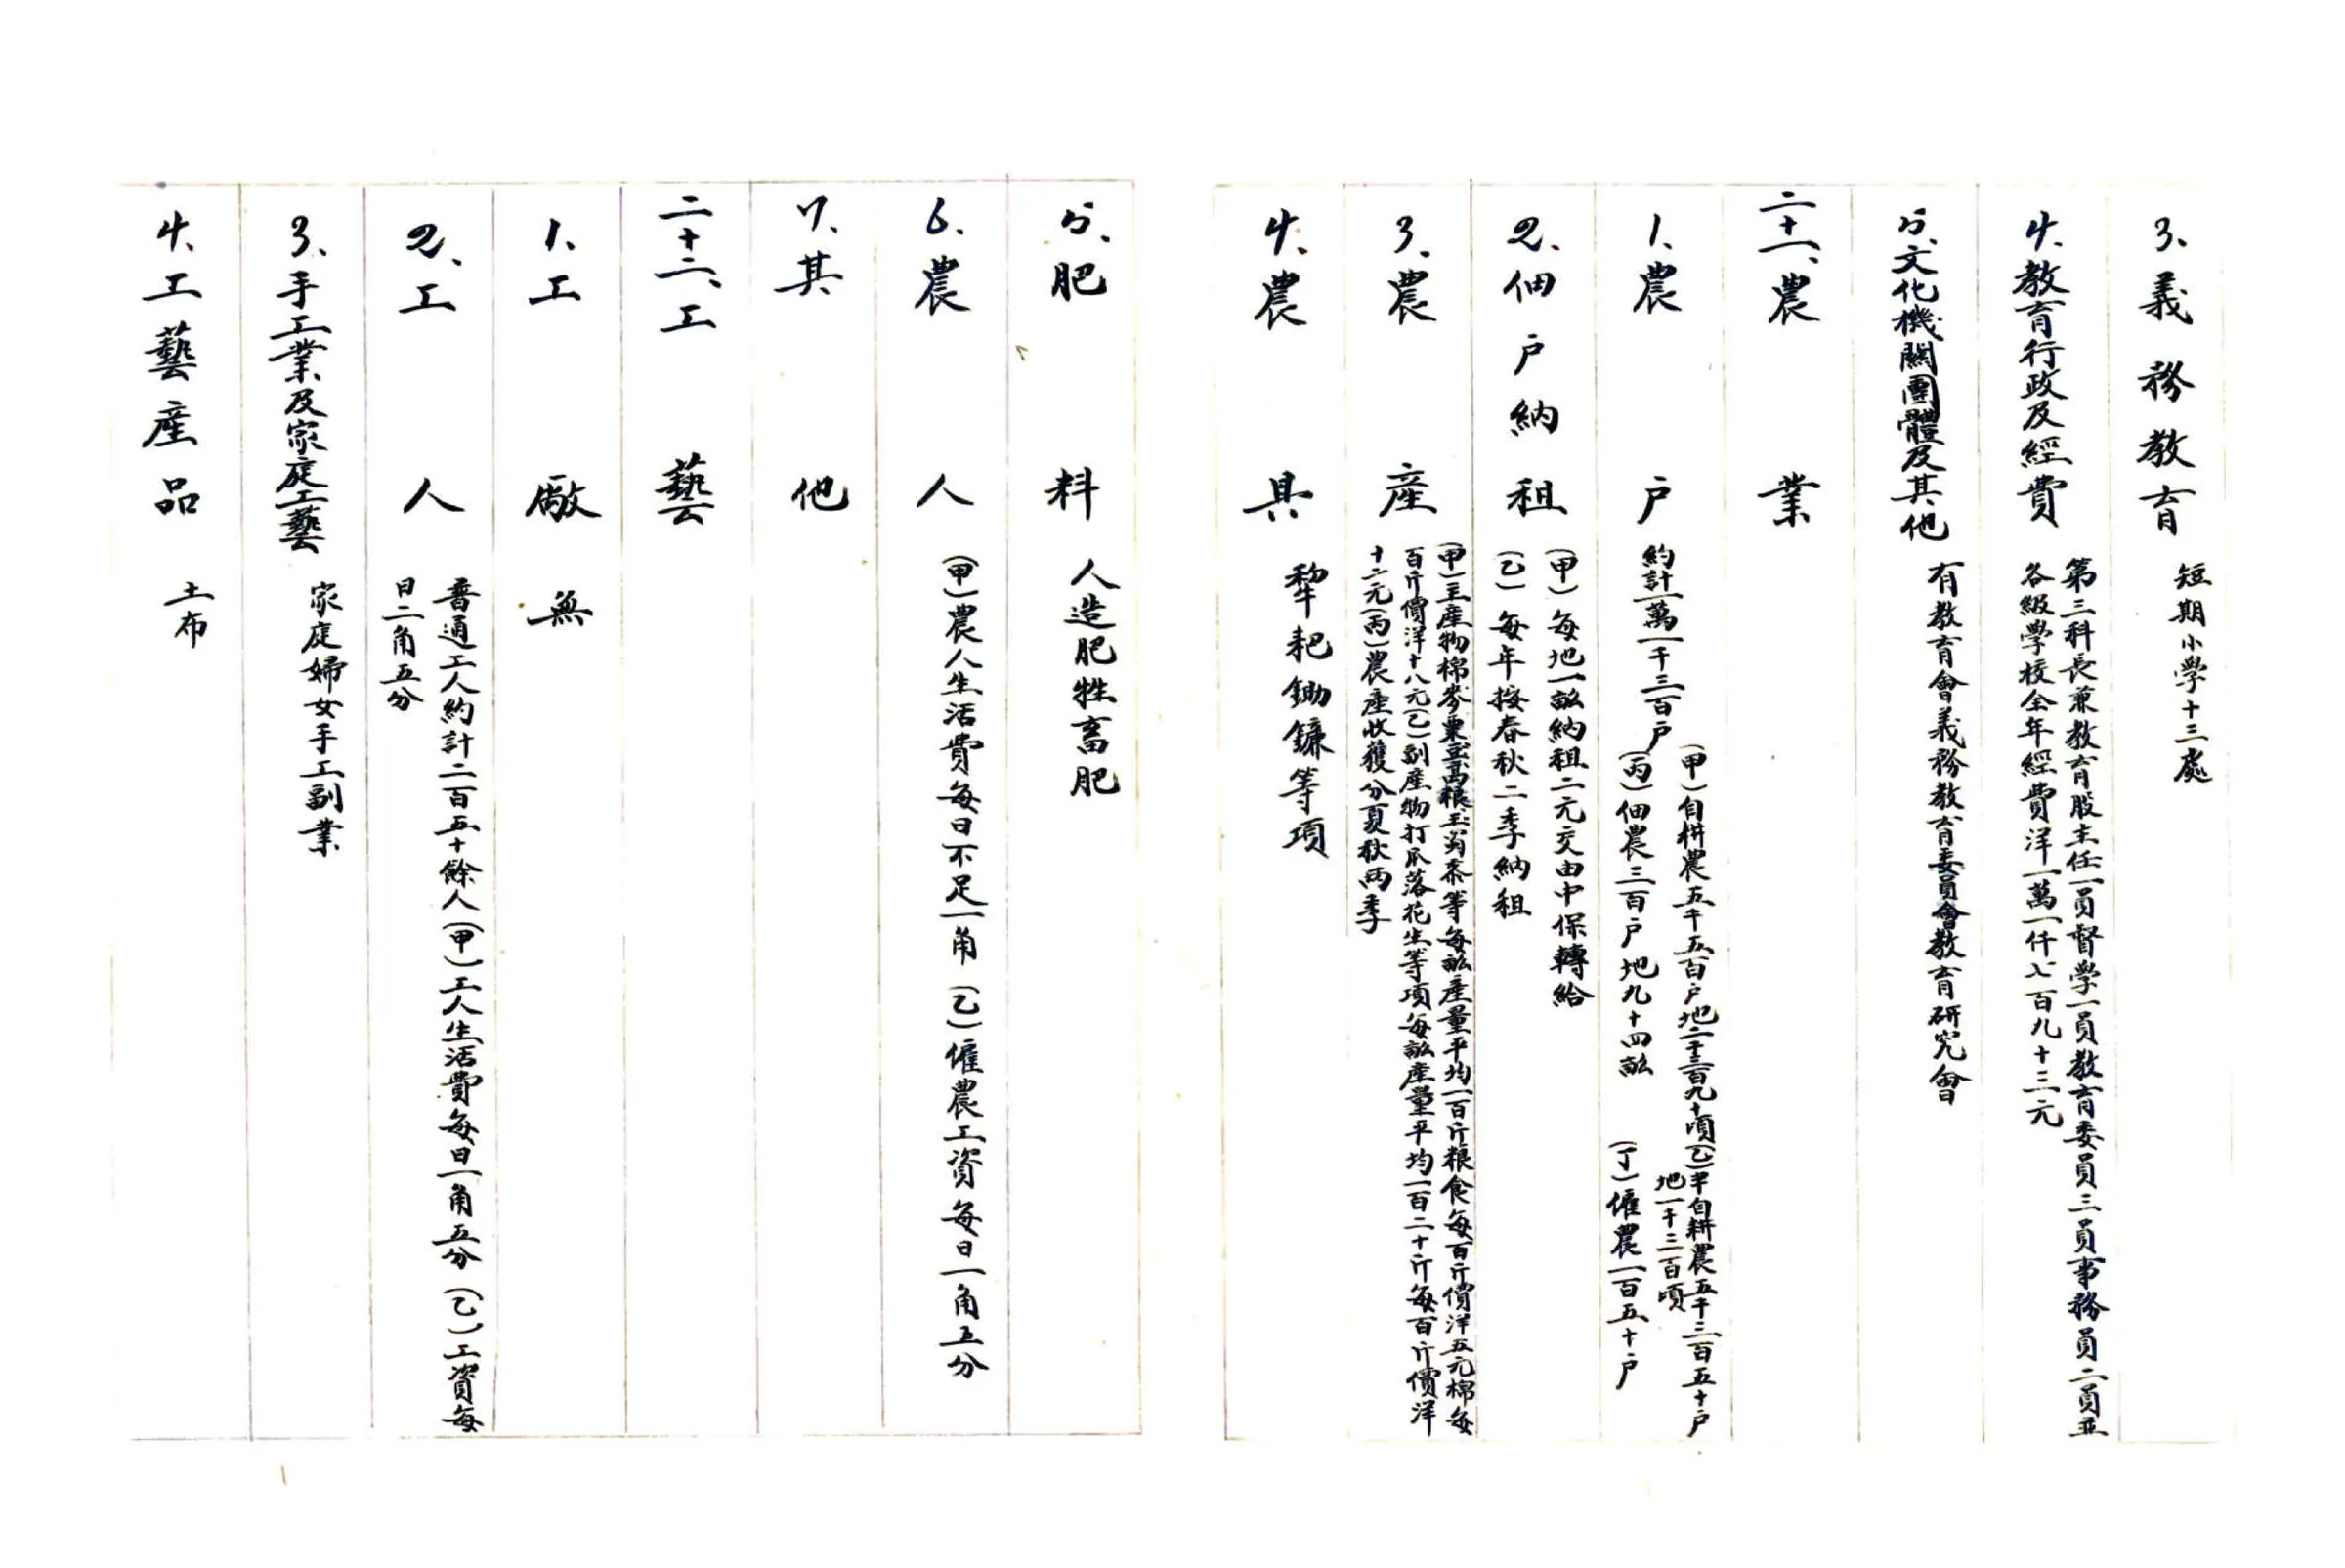 3、義務教育
短期小學十三處
4、教育行政及經費
第三科長兼教育股主任一員督學一員教育委員三員事務員二員並
各級學校全年經費洋一萬一仟七百九十三元
5、文化機關團體及其他
有教育會義務教育委員會教育研究會
二十一、農業
1、農户
約計一萬一千三百户
(甲)自耕農五千五百户地二千三百九十頃(乙)半自耕農五千三百五十户
地一千三百頃
(丙)佃農三百户地九十四畝
(丁)僱農一百五十户
2、佃户納租
(甲)每地一畝納租二元交由中保轉給
(乙)每年按春秋二季納租
3、農産
(甲)主産物棉麥粟豆高粮玉蜀黍等每畝産量平均一百斤粮食每百斤價洋五元棉每
百斤價洋十八元(乙)副産物打瓜落花生等項每畝産量平均一百二十斤每百斤價洋
十二元(丙)農産收獲分夏秋兩季
4、農具
犂耙鋤鐮等項
5、肥料
人造肥牲畜肥
6、農人
(甲)農人生活費每日不足一角(乙)僱農工資每日一角五分
7、其他
二十二、工藝
1、工廠
無
2、工人
普通工人約計二百五十餘人(甲)工人生活費每日一角五分(乙)工資每
日二角五分
3、手工業及家庭工藝
家庭婦女手工副業
4、工藝産品
土布